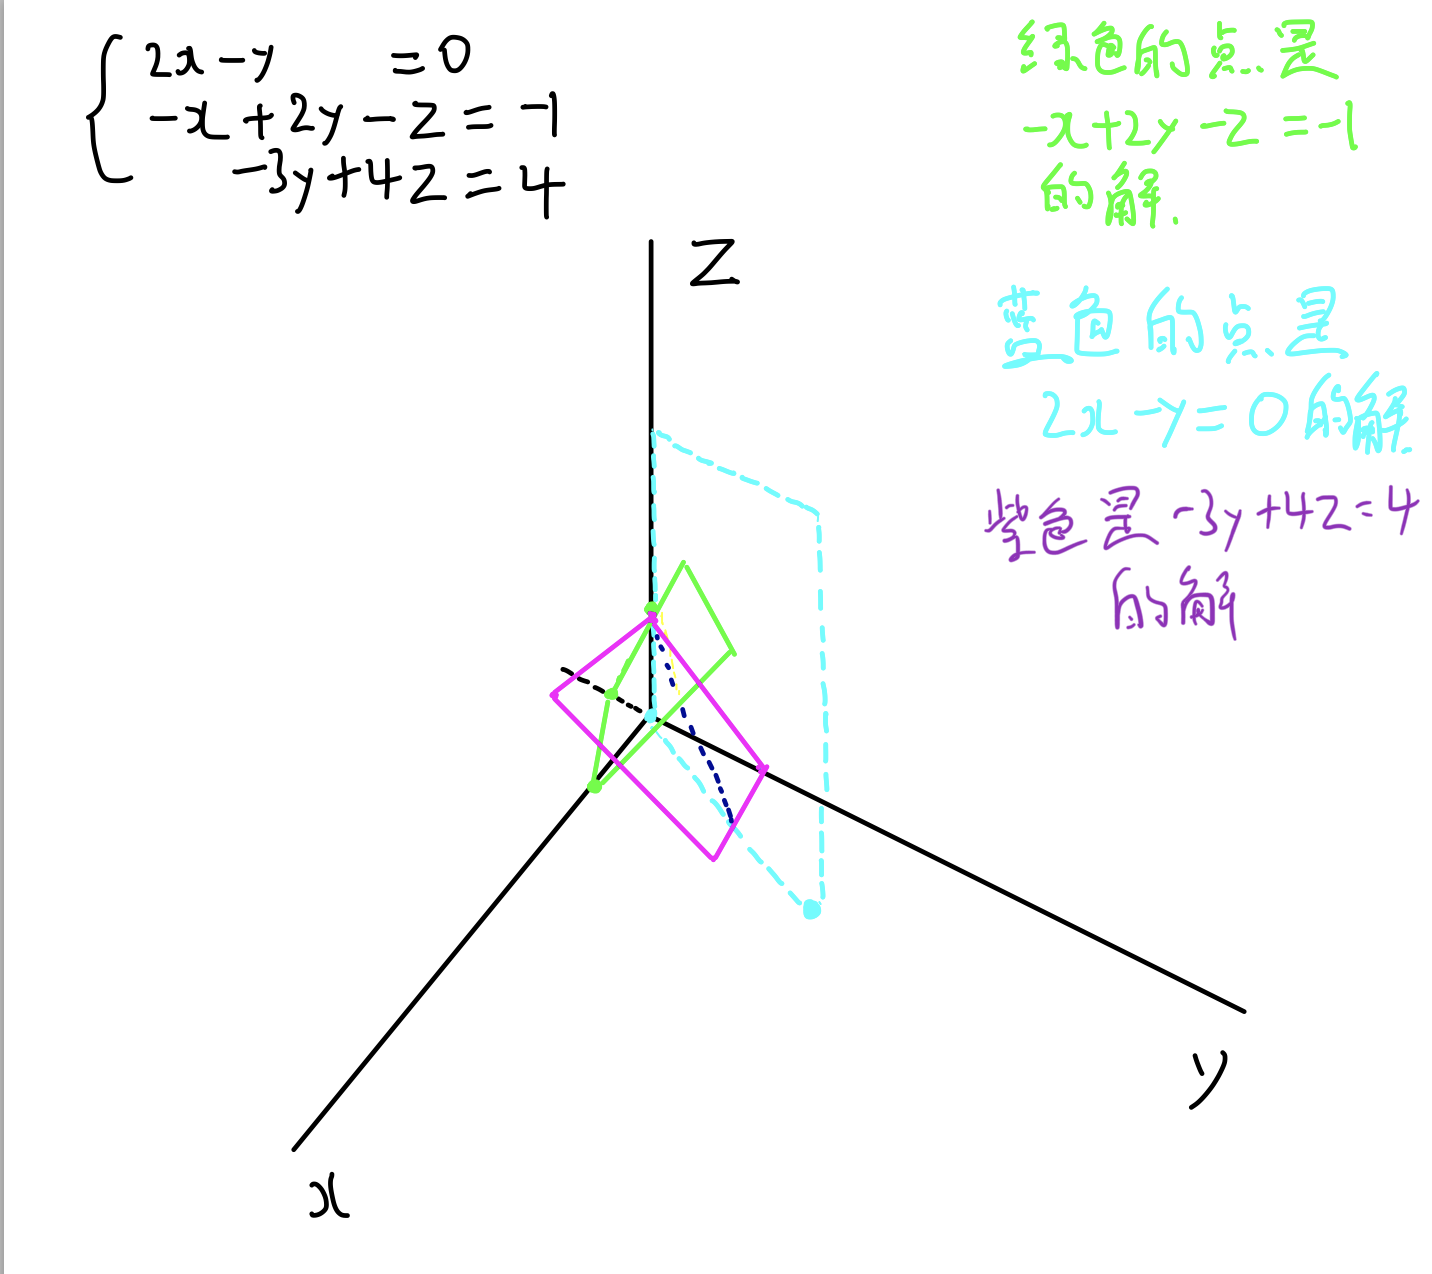 2x-y =0
-x+2y-z=-1
-3y+4z=4
绿色的点是
-x+2y-z=-1
的解.
蓝色的点是
2x-y=0的解.
紫色是-3y+4z=4
的解
z
y
x